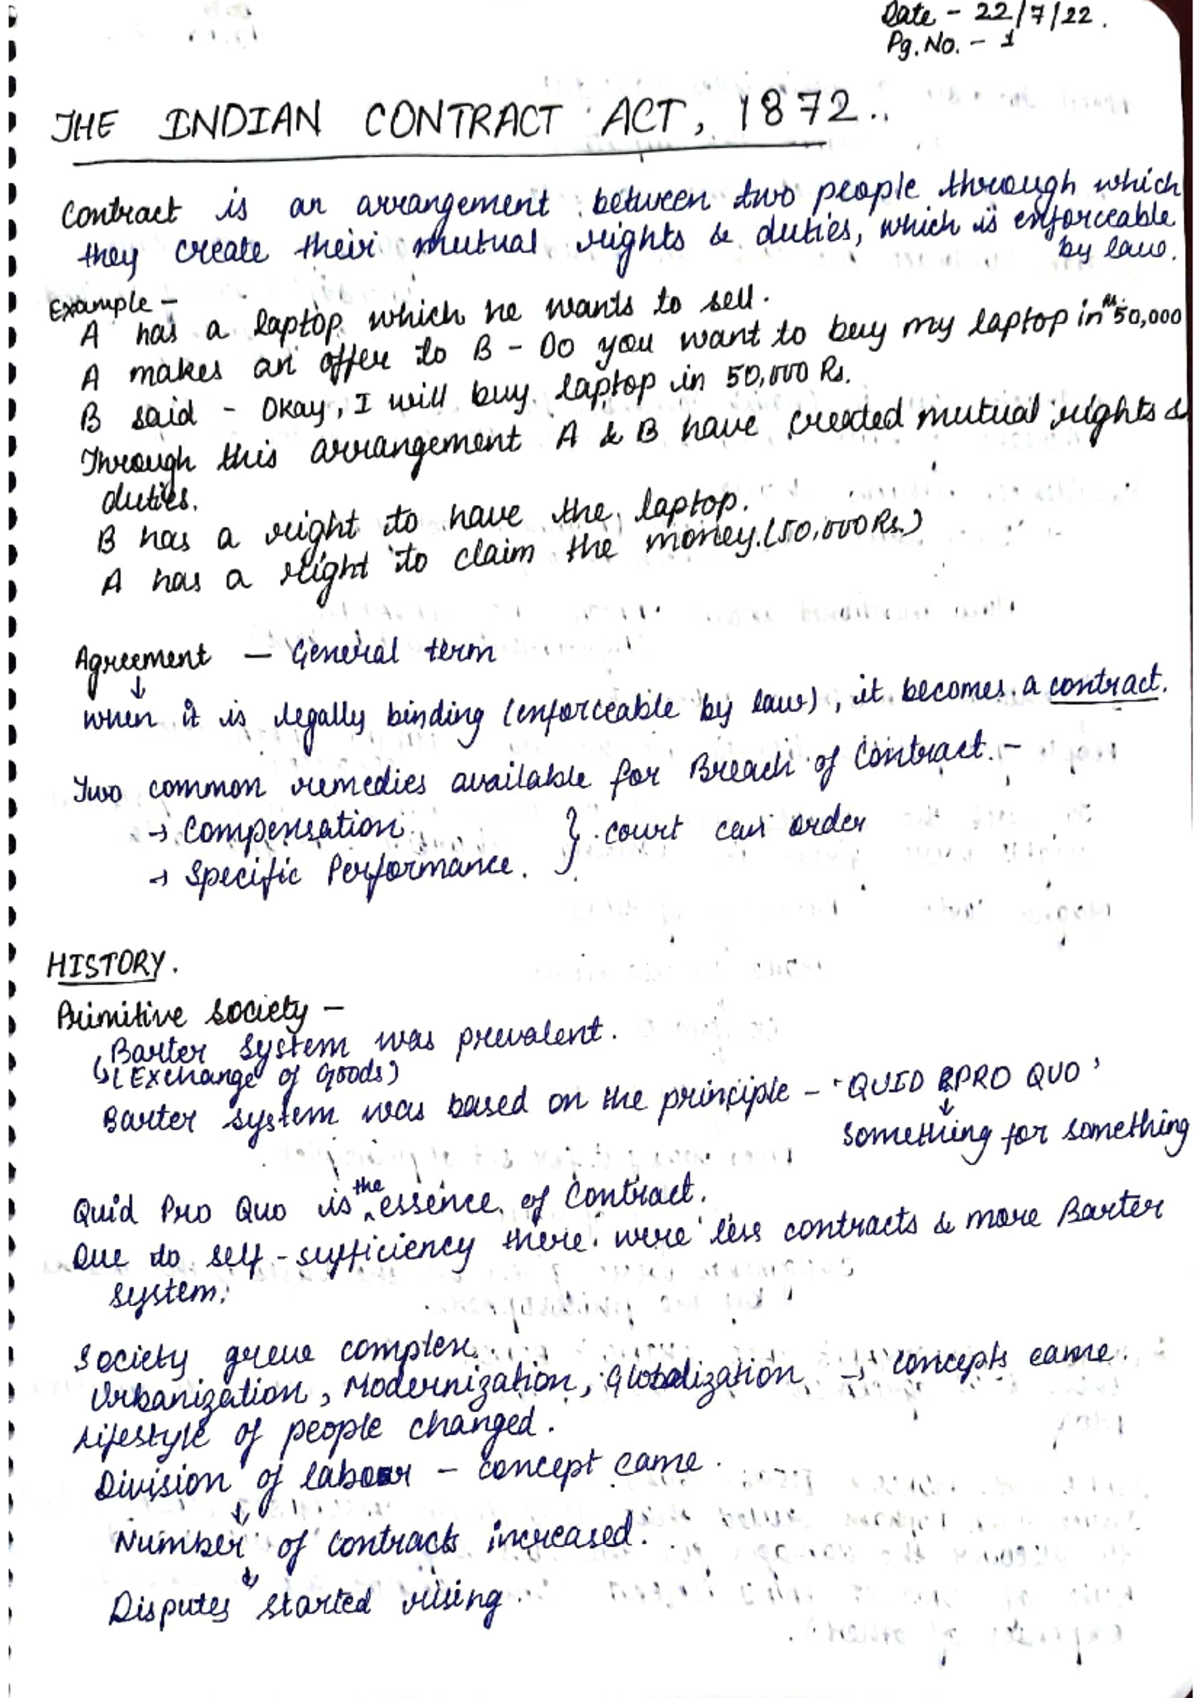 Date - 22/7/22.
Pg. No. - 1
THE INDIAN CONTRACT ACT, 1872..
Contract is an arrangement between two people through which
they create their mutual rights & duties, which is enforceable
by law.
Example -
A has a laptop which he wants to sell.
A makes an offer to B - Do you want to buy my laptop in Rs. 50,000
B said - Okay, I will buy laptop in 50,000 Rs.
Through this arrangement A & B have created mutual rights &
duties.
B has a right to have the laptop.
A has a right to claim the money. (50,000 Rs.)
Agreement — General term
↓
when it is legally binding (enforceable by law), it becomes a contract.
Two common remedies available for Breach of Contract. -
→ Compensation } court can order
→ Specific Performance.
HISTORY.
Primitive Society -
Barter System was prevalent.
↳ (Exchange of Goods)
Barter system was based on the principle - 'QUID PRO QUO'
↓
Something for something
Quid Pro Quo is the essence of Contract.
Due to self-sufficiency there were less contracts & more Barter
system.
Society grew complex.
Urbanization, Modernization, Globalization → concepts came.
Lifestyle of people changed.
Division of labour - concept came.
↓
Number of contracts increased.
↓
Disputes started rising.